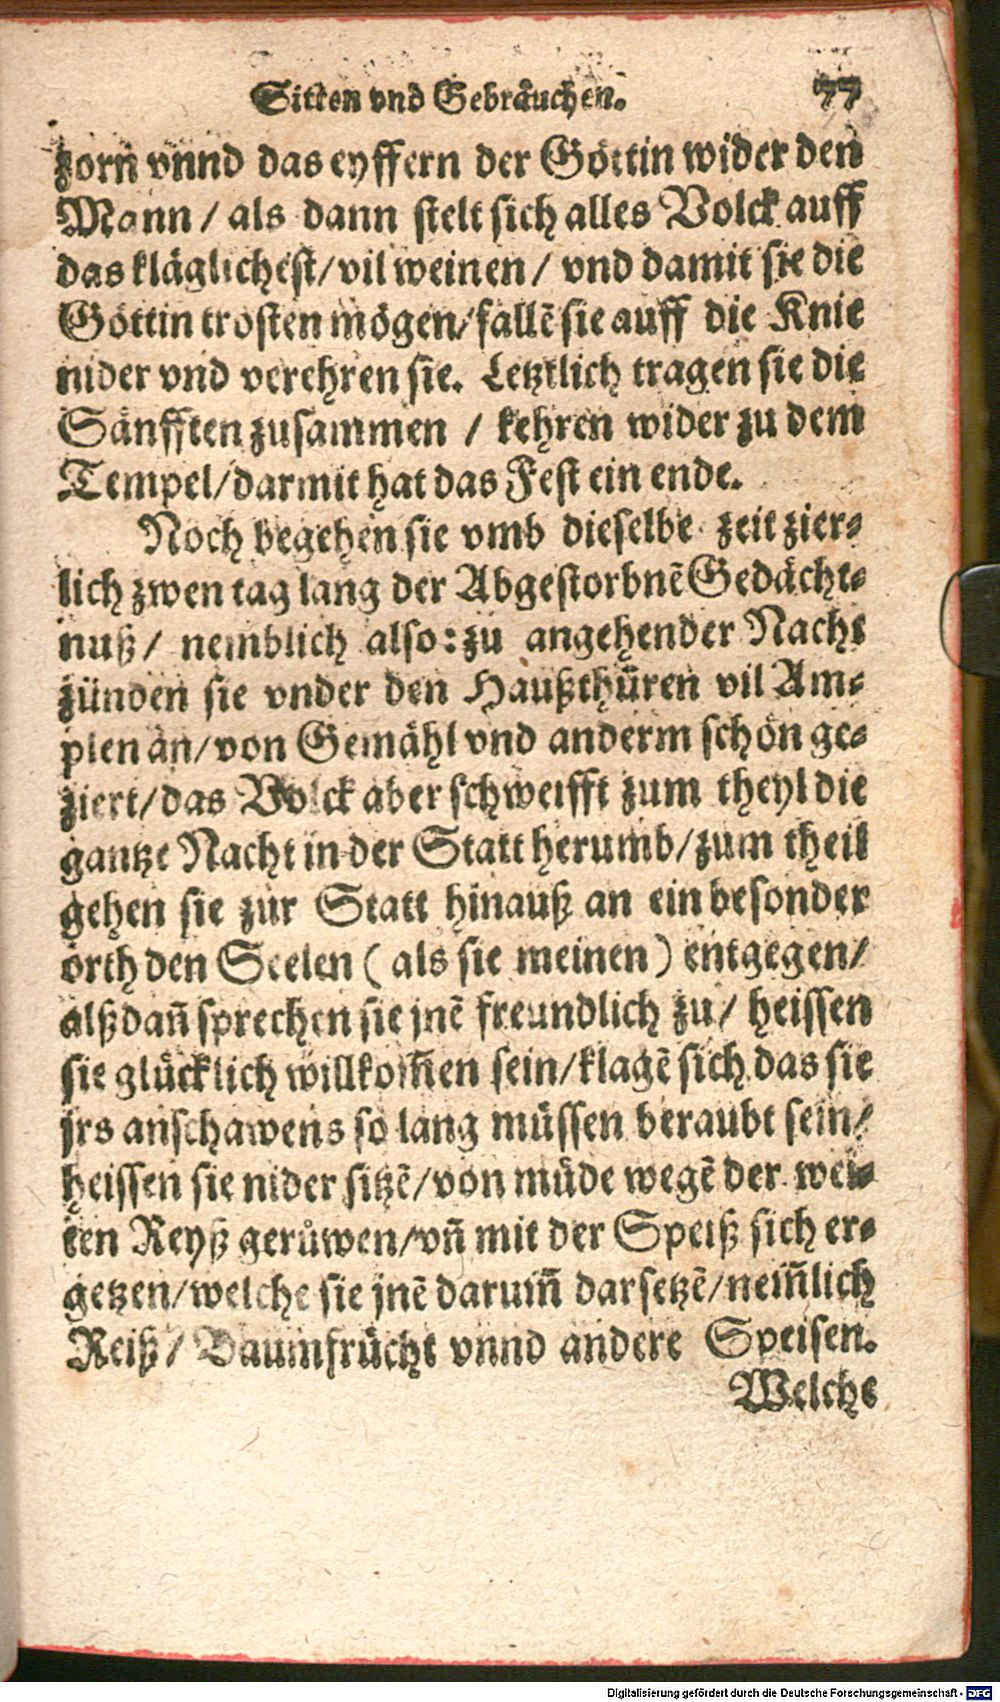 Sitten vnd Gebräuchen. 77
zorn vnnd das eyffern der Göttin wider den
Mann / als dann stelt sich alles Volck auff
das kläglichest / vil weinen / vnd damit sie die
Göttin trosten mögen / fallē sie auff die Knie
nider vnd verehren sie. Letztlich tragen sie die
Sänfften zusammen / kehren wider zu dem
Tempel / darmit hat das Fest ein ende.
Noch begehen sie vmb dieselbe zeit zier⸗
lich zwen tag lang der Abgestorbnē Gedächt⸗
nuß / nemblich also: zu angehender Nacht
zünden sie vnder den Haußthüren vil Am⸗
plen an / von Gemähl vnd anderm schön ge⸗
ziert / das Volck aber schweifft zum theyl die
gantze Nacht in der Statt herumb / zum theil
gehen sie zur Statt hinauß an ein besonder
orth den Seelen ( als sie meinen ) entgegen /
alßdañ sprechen sie jnē freundlich zu / heissen
sie glücklich willkom̃en sein / klagē sich das sie
jrs anschawens so lang müssen beraubt sein /
heissen sie nider sitzē / von müde wegē der wei⸗
ten Reyß gerůwen / vñ mit der Speiß sich er⸗
getzen / welche sie jnē darum̃ darsetzē / nem̃lich
Reiß / Baumfrücht vnnd andere Speisen.
Welchs
Digitalisierung gefördert durch die Deutsche Forschungsgemeinschaft - DFG